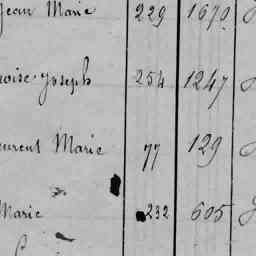 Jean Marie 229 1670
Joseph 254 1247
Marie 77 129
Marie 232 605